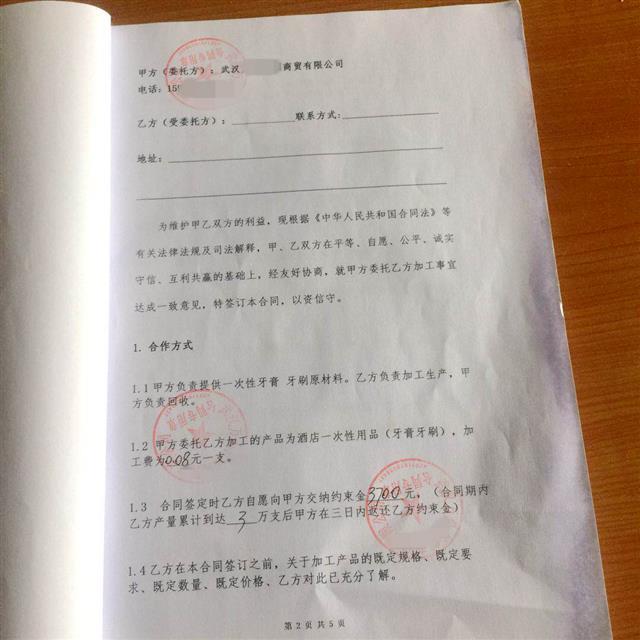 甲方（委托方）：武汉 商贸有限公司
电话：15
乙方（受委托方）：联系方式：
地址：
为维护甲乙双方的利益，现根据《中华人民共和国合同法》等
有关法律法规及司法解释，甲、乙双方在平等、自愿、公平、诚实
守信、互利共赢的基础上，经友好协商，就甲方委托乙方加工事宜
达成一致意见，特签订本合同，以资信守。
1. 合作方式
1.1 甲方负责提供一次性牙膏 牙刷原材料。乙方负责加工生产，甲
方负责回收。
1.2 甲方委托乙方加工的产品为酒店一次性用品（牙膏牙刷），加
工费为0.08元一支。
1.3 合同签定时乙方自愿向甲方交纳约束金3700元，（合同期内
乙方产量累计到达 3 万支后甲方在三日内返还乙方约束金）
1.4 乙方在本合同签订之前，关于加工产品的既定规格、既定要
求、既定数量、既定价格、乙方对此已充分了解。
第 2 页 共 5 页